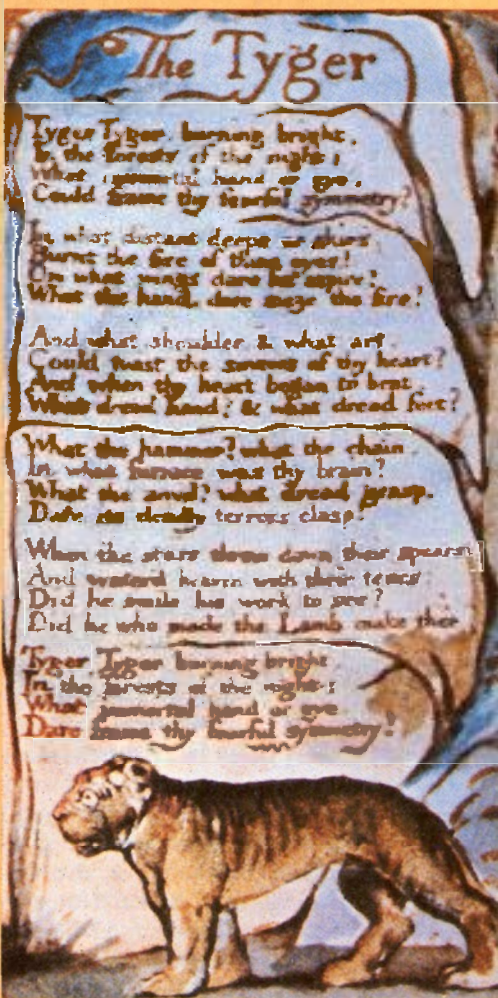 The Tyger
Tyger Tyger, burning bright,
In the forests of the night;
What immortal hand or eye,
Could frame thy fearful symmetry?
In what distant deeps or skies
Burnt the fire of thine eyes?
On what wings dare he aspire?
What the hand, dare seize the fire?
And what shoulder & what art,
Could twist the sinews of thy heart?
And when thy heart began to beat,
What dread hand? & what dread feet?
What the hammer? what the chain,
In what furnace was thy brain?
What the anvil? what dread grasp,
Dare its deadly terrors clasp?
When the stars threw down their spears
And water'd heaven with their tears
Did he smile his work to see?
Did he who made the Lamb make thee
Tyger Tyger burning bright,
In the forests of the night;
What immortal hand or eye
Dare frame thy fearful symmetry?